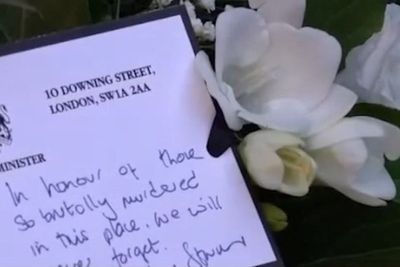 10 DOWNING STREET,
LONDON, SW1A 2AA
MINISTER
In honour of those
so brutally murdered
in this place. We will
forget.